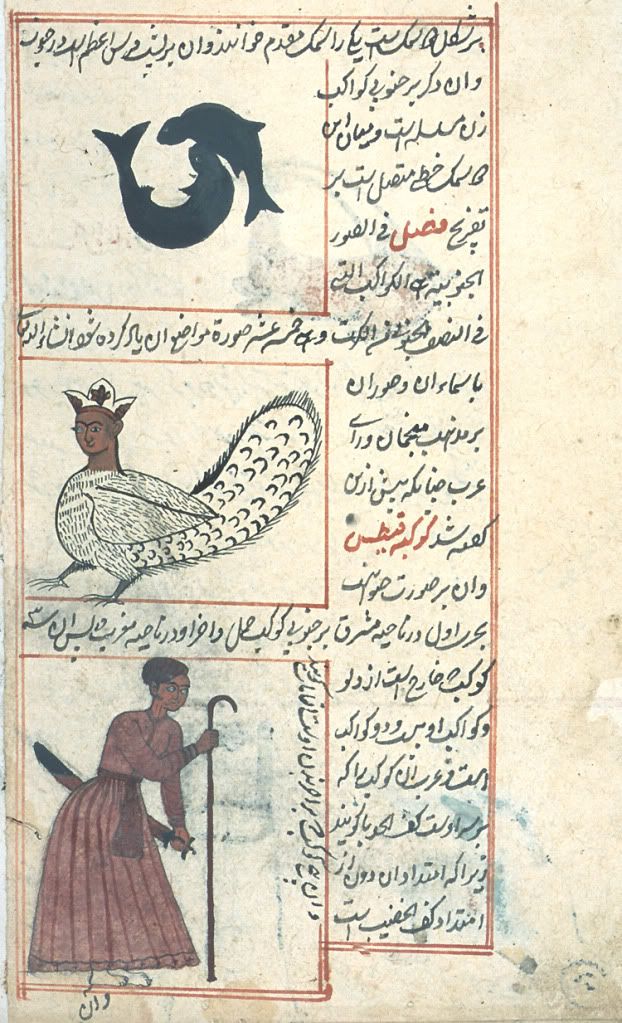 بر شکل دو سمک است یکی را سمک مقدم خوانند و آن بر پشت فرس اعظم است در جنوب
و آن دگر بر جنوبی کواکب
زن مسلسله است و میان این
دو سمک خطی متصل است بر
تعریج فصل فی الصور
الجنوبیة ای الکواکب التی
فی النصف الجنوبی من الکرت و ای خمسه عشر صورة مواضع آن یاد کرده شود انشاء الله
باسماء آن و صور آن
بر مذهب منجمان و رای
عرب چنانکه پیش ازین
گفته شد کوکبه قیطس
و آن بر صورت حیوانیست
بحری اول در ناحیه مشرق بر جنوبی کوکب حمل و آخر او در ناحیه مغرب پس آن سه
کوکب که خارج است از دلو
و کواکب او بیست و دو کواکب
است و عرب آن کوکب را که
بر سر اوست کف الجذما گویند
زیرا که امتداد آن دون از
امتداد کف الخضیب است
و آن